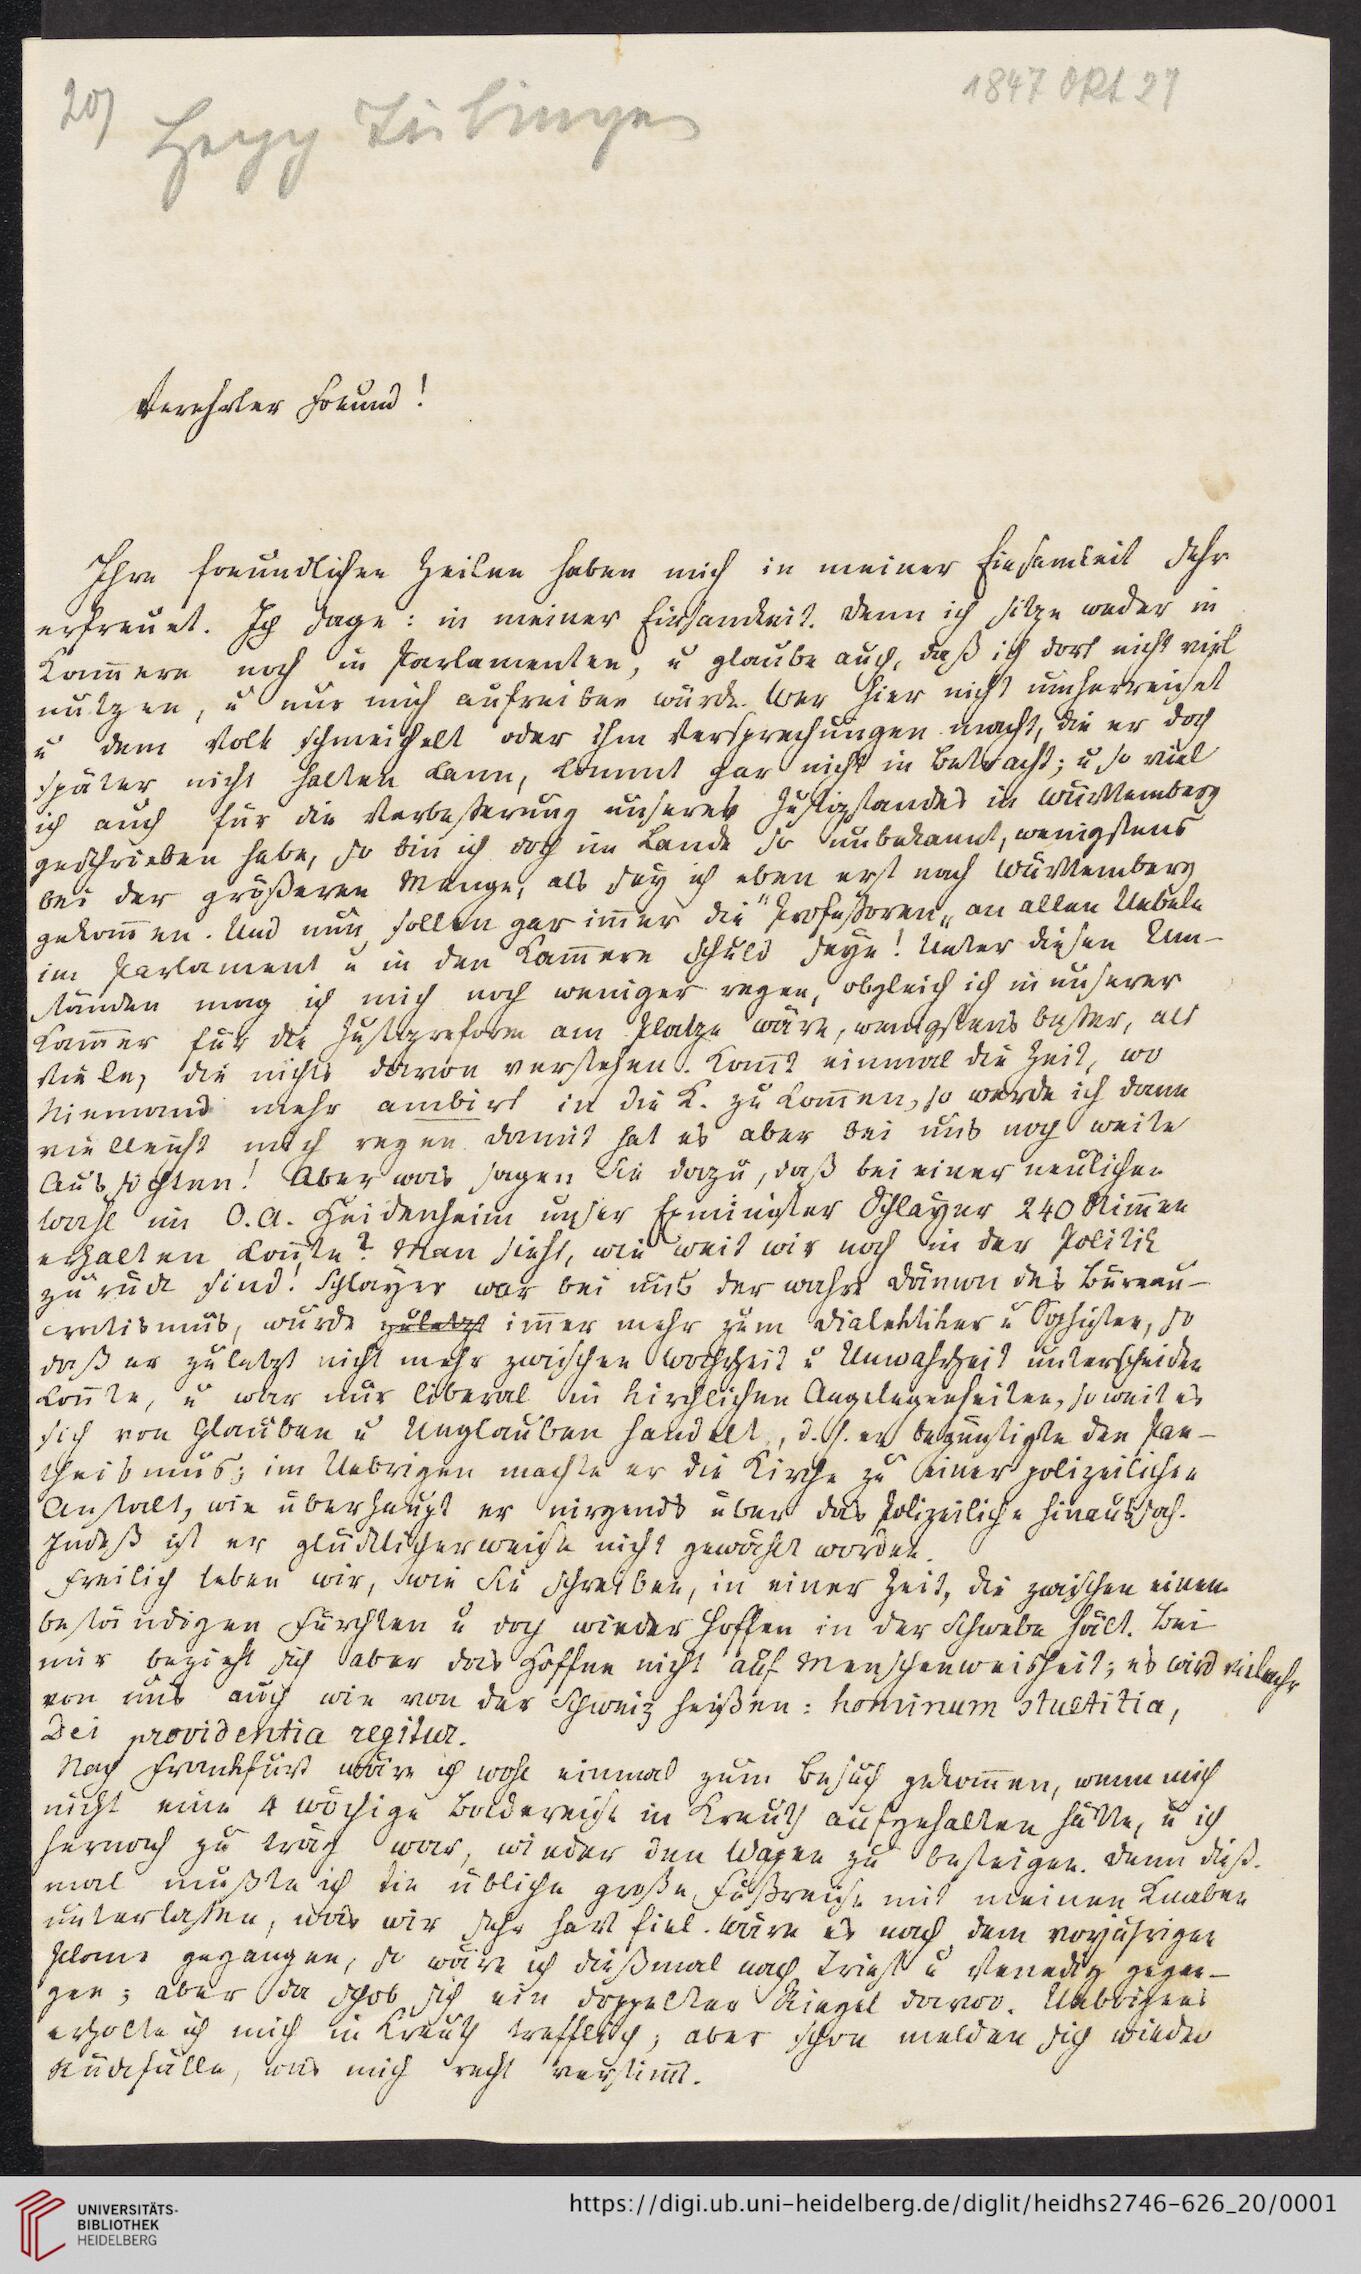 20)
Hepp Tübingen
1847 Okt 27
Verehrter Freund!
Ihre freundlichen Zeilen haben mich in meiner Einsamkeit sehr
erfreuet. Ich sage: in meiner Einsamkeit. Denn ich sitze weder in
Kam̄ern noch in Parlamenten, u glaube auch, daß ich dort nicht viel
nutzen, u nur mich aufreiben würde. Wer hier nicht umherreiset
u dem Volk schmeichelt oder ihm Versprechungen macht, die er doch
später nicht halten kann, kommt gar nicht in Betracht; u so viel
ich auch für die Verbesserung unseres Justizstandes in Württemberg
geschrieben habe, so bin ich doch im Lande so unbekannt, wenigstens
bei der größeren Menge, als sey ich eben erst nach Württemberg
gekom̄en. Und nun sollen gar im̄er die "Professoren" an allen Uebeln
im Parlament u in den Kam̄ern Schuld seyn! Unter diesen Um-
ständen mag ich mich noch weniger regen, obgleich ich in unserer
Kam̄er für die Justizreform am Platze wäre, wenigstens besser, als
viele, die nichts davon verstehen. Kom̄t einmal die Zeit, wo
Niemand mehr ambirt in die K. zu kom̄en, so werde ich dann
vielleicht mich regen. damit hat es aber bei uns noch weite
Aussichten! Aber was sagen Sie dazu, daß bei einer neulichen
Wahl im O.A. Heidenheim unser Exminister Schlayer 240 Stim̄en
erhalten kon̄te? Man sieht, wie weit wir noch in der Politik
zurück sind! Schlayer war bei uns der wahre Dämon des Bureau-
cratismus, wurde zuletzt im̄er mehr zum Dialektiker u Sophisten, so
daß er zuletzt nicht mehr zwischen Wahrheit u Unwahrheit unterscheiden
kon̄te, u war nur liberal in kirchlichen Angelegenheiten, soweit es
sich von Glauben u Unglauben handelt, d.h. er begünstigte den Pan-
theismus; im Uebrigen machte er die Kirche zu einer polizeilichen
Anstalt, wie überhaupt er nirgends über das Polizeiliche hinaussah.
Indeß ist er glücklicherweise nicht gewählt worden.
Freilich leben wir, wie Sie schreiben, in einer Zeit, die zwischen einem
beständigen Fürchten u doch wieder Hoffen in der Schwebe hält. Bei
mir bezieht sich aber das Hoffen nicht auf Menschenweisheit; es wird vielmehr
von uns auch wie von der Schweiz heißen: hominum stultitia,
Dei providentia regitur.
Nach Frankfurt wäre ich wohl einmal zum Besuch gekom̄en, wenn mich
nicht eine 4 wöchige Badereise in Kreuth aufgehalten hätte, u ich
hernach zu träg war, wieder den Wagen zu besteigen. Denn dieß-
mal mußte ich die übliche große Fußreise mit meinen Knaben
unterlassen, was mir sehr hart fiel. Wäre es nach dem vorjährigen
Plane gegangen, so wäre ich dießmal nach Triest u Venedig gegan-
gen; aber da schob sich ein doppelter Riegel davor. Uebrigens
erholte ich mich in Kreuth trefflich; aber schon melden sich wieder
Rückfälle, was mich recht verstim̄t.
UNIVERSITÄTS-
BIBLIOTHEK
HEIDELBERG
https://digi.ub.uni-heidelberg.de/diglit/heidhs2746-626_20/0001